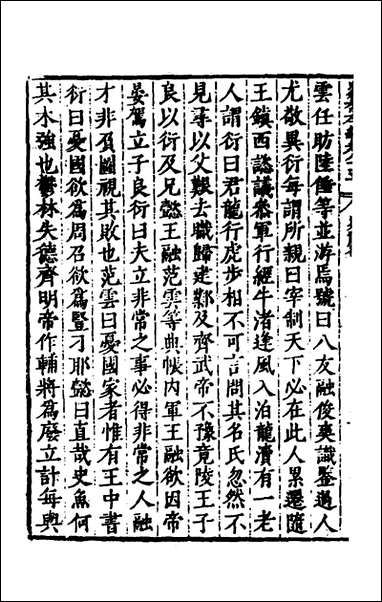 雲任昉陸倕等並游焉號曰八友融俊爽識鑒過人
尤敬異衍每謂所親曰宰制天下必在此人累遷隨
王鎮西諮議參軍行經牛渚逢風入泊龍瀆有一老
人謂衍曰君龍行虎步相不可言問其名氏忽然不
見尋以父艱去職歸建鄴及齊武帝不豫竟陵王子
良以衍及兄懿王融范雲等典帳內軍王融欲因帝
晏駕立子良衍曰夫立非常之事必得非常之人融
才非負圖視其敗也范雲曰憂國家者惟有王中書
衍曰憂國欲為周召欲為豎刁耶懿曰直哉史魚何
其木強也鬱林失德齊明帝作輔將為廢立計每與